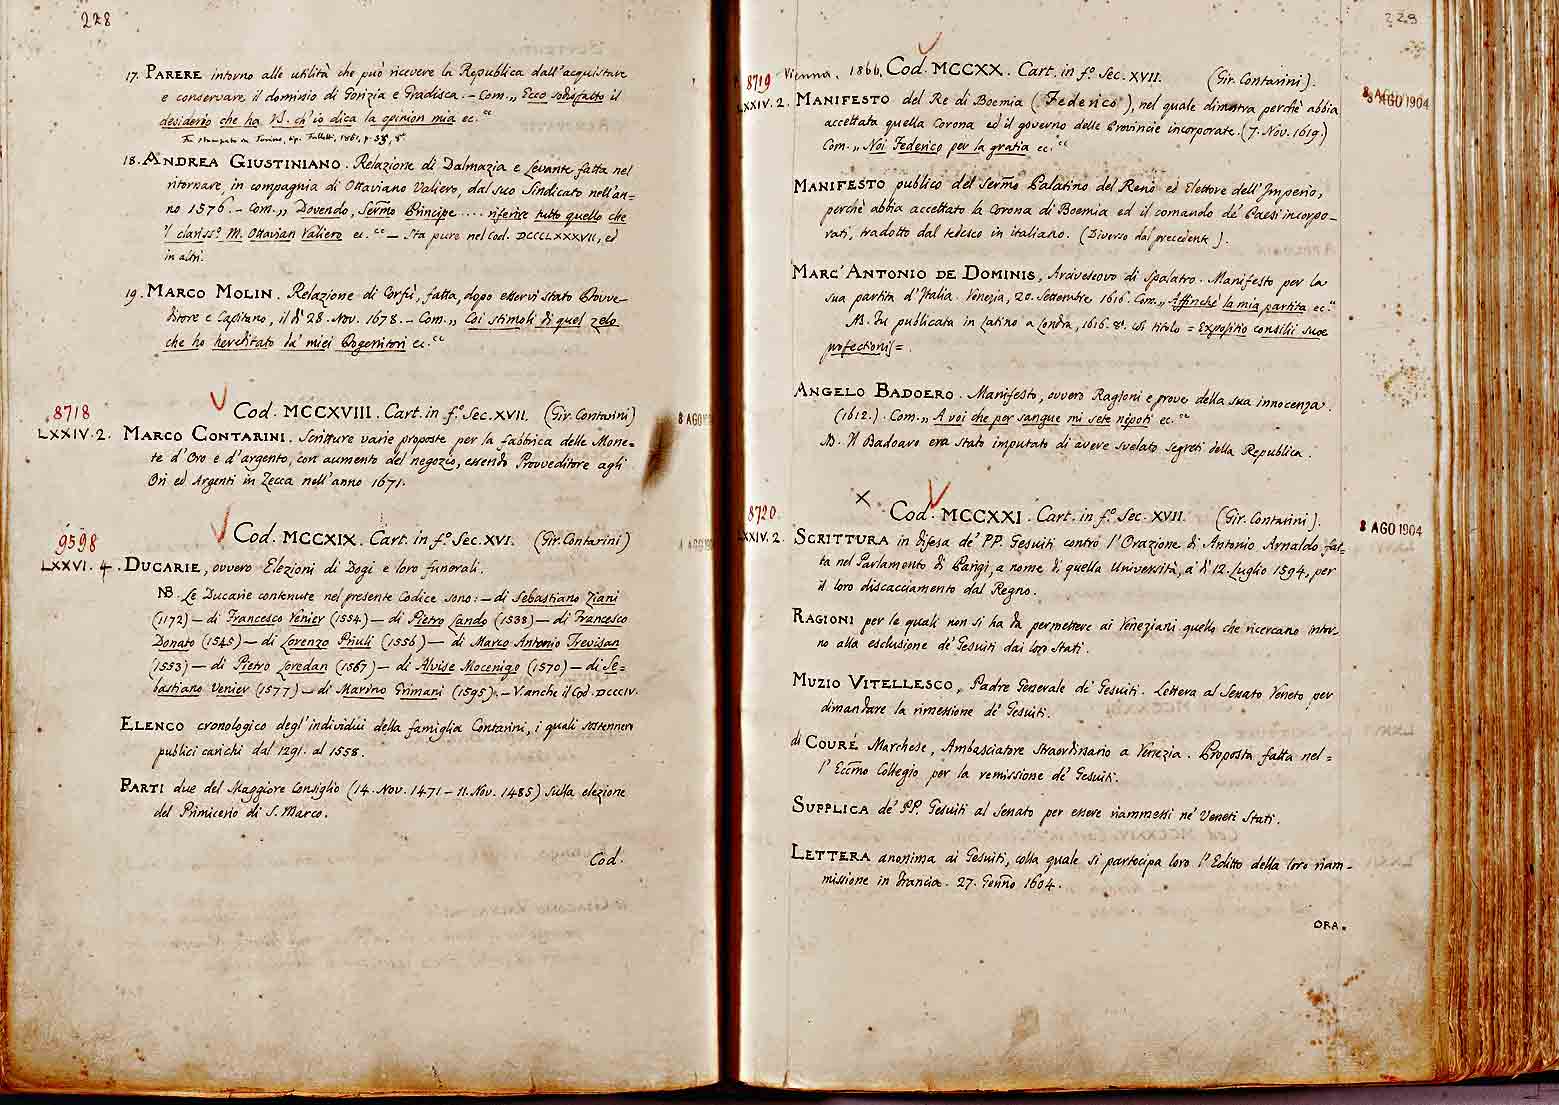 228
17. PARERE intorno alle utilità che può ricevere la Republica dall'acquistare
e conservare il dominio di Gorizia e Gradisca. - Com. „ Ecco sodisfatto il
desiderio che ha VS. ch'io dica la opinion mia ec."
18. ANDREA GIUSTINIANO. Relazione di Dalmazia e Levante fatta nel
ritornare, in compagnia di Ottaviano Valiero, dal suo Sindicato nell'an=
no 1576. - Com. „ Dovendo, Sermo Principe .... riferire tutto quello che
'l clariss.o M. Ottavian Valiero ec." - Sta pure nel Cod. DCCCLXXXVII, ed
in altri.
19. MARCO MOLIN. Relazione di Corfù, fatta, dopo esservi stato Provve-
ditore e Capitano, il dì 28. Nov. 1678. - Com. „ Coi stimoli di quel zelo
che ho hereditato da' miei Progenitori ec."
8718
LXXIV. 2.
Cod. MCCXVIII. Cart. in f.o Sec. XVII. (Gir. Contarini)
8 AGO
MARCO CONTARINI. Scritture varie proposte per la fabbrica delle Mone=
te d'Oro e d'argento, con aumento del negozio, essendo Provveditore agli
Ori ed Argenti in Zecca nell'anno 1671.
9598
LXXVI. 4.
Cod. MCCXIX. Cart. in f.o Sec. XVI. (Gir. Contarini)
DUCARIE, ovvero Elezioni di Dogi e loro funerali.
NB. Le Ducarie contenute nel presente Codice sono: - di Sebastiano Ziani
(1172) - di Francesco Venier (1554) - di Pietro Lando (1538) - di Francesco
Donato (1545) - di Lorenzo Priuli (1556) - di Marco Antonio Trevisan
(1553) - di Pietro Loredan (1567) - di Alvise Mocenigo (1570) - di Se=
bastiano Venier (1577) - di Marino Grimani (1595). - V. anche il Cod. DCCCIV.
ELENCO cronologico degl'individui della famiglia Contarini, i quali sostennero
publici carichi dal 1291. al 1558.
PARTI due del Maggiore Consiglio (14. Nov. 1471 - 11. Nov. 1485) sulla elezione
del Primicerio di S. Marco.
Cod.
229
8719
LXXIV. 2.
Vienna. 1866. Cod. MCCXX. Cart. in f.o Sec. XVII. (Gir. Contarini).
8 AGO 1904
MANIFESTO del Re di Boemia (Federico), nel quale dimostra perchè abbia
accettata quella Corona ed il governo delle Provincie incorporate. (7. Nov. 1619.)
Com. „ Noi Federico per la gratia ec."
MANIFESTO publico del Sermo Palatino del Reno ed Elettore dell'Imperio,
perchè abbia accettato la Corona di Boemia ed il comando de' Paesi incorpo-
rati, tradotto dal tedesco in italiano. (Diverso dal precedente).
MARC'ANTONIO DE DOMINIS, Arcivescovo di Spalatro. Manifesto per la
sua partita d'Italia. Venezia, 20. Settembre 1616. Com. „ Affinchè la mia partita ec."
NB. Fu publicata in Latino a Londra, 1616. 8.o col titolo = Expositio consilii suae
profectionis =.
ANGELO BADOERO. Manifesto, ovvero Ragioni e prove della sua innocenza.
(1612.). Com. „ A voi che per sangue mi sete nipoti ec."
NB. Il Badoaro era stato imputato di avere svelato segreti della Republica.
8720.
LXXIV. 2.
X
Cod. MCCXXI. Cart. in f.o Sec. XVII. (Gir. Contarini).
8 AGO 1904
SCRITTURA in difesa de' PP. Gesuiti contro l'Orazione di Antonio Arnaldo fat-
ta nel Parlamento di Parigi, a nome di quella Università, a dì 12. Luglio 1594. per
il loro discacciamento dal Regno.
RAGIONI per le quali non si ha da permettere ai Veneziani quello che ricercano intor-
no alla esclusione de' Gesuiti dai loro Stati.
MUZIO VITELLESCO, Padre Generale de' Gesuiti. Lettera al Senato Veneto per
dimandare la rimessione de' Gesuiti.
di COURÉ Marchese, Ambasciatore straordinario a Venezia. Proposta fatta nel=
l'Eccmo Collegio per la remissione de' Gesuiti.
SUPPLICA de' PP. Gesuiti al Senato per essere riammessi ne' Veneti Stati.
LETTERA anonima ai Gesuiti, colla quale si partecipa loro l'Editto della loro riam-
missione in Francia. 27. Genno 1604.
ORA.